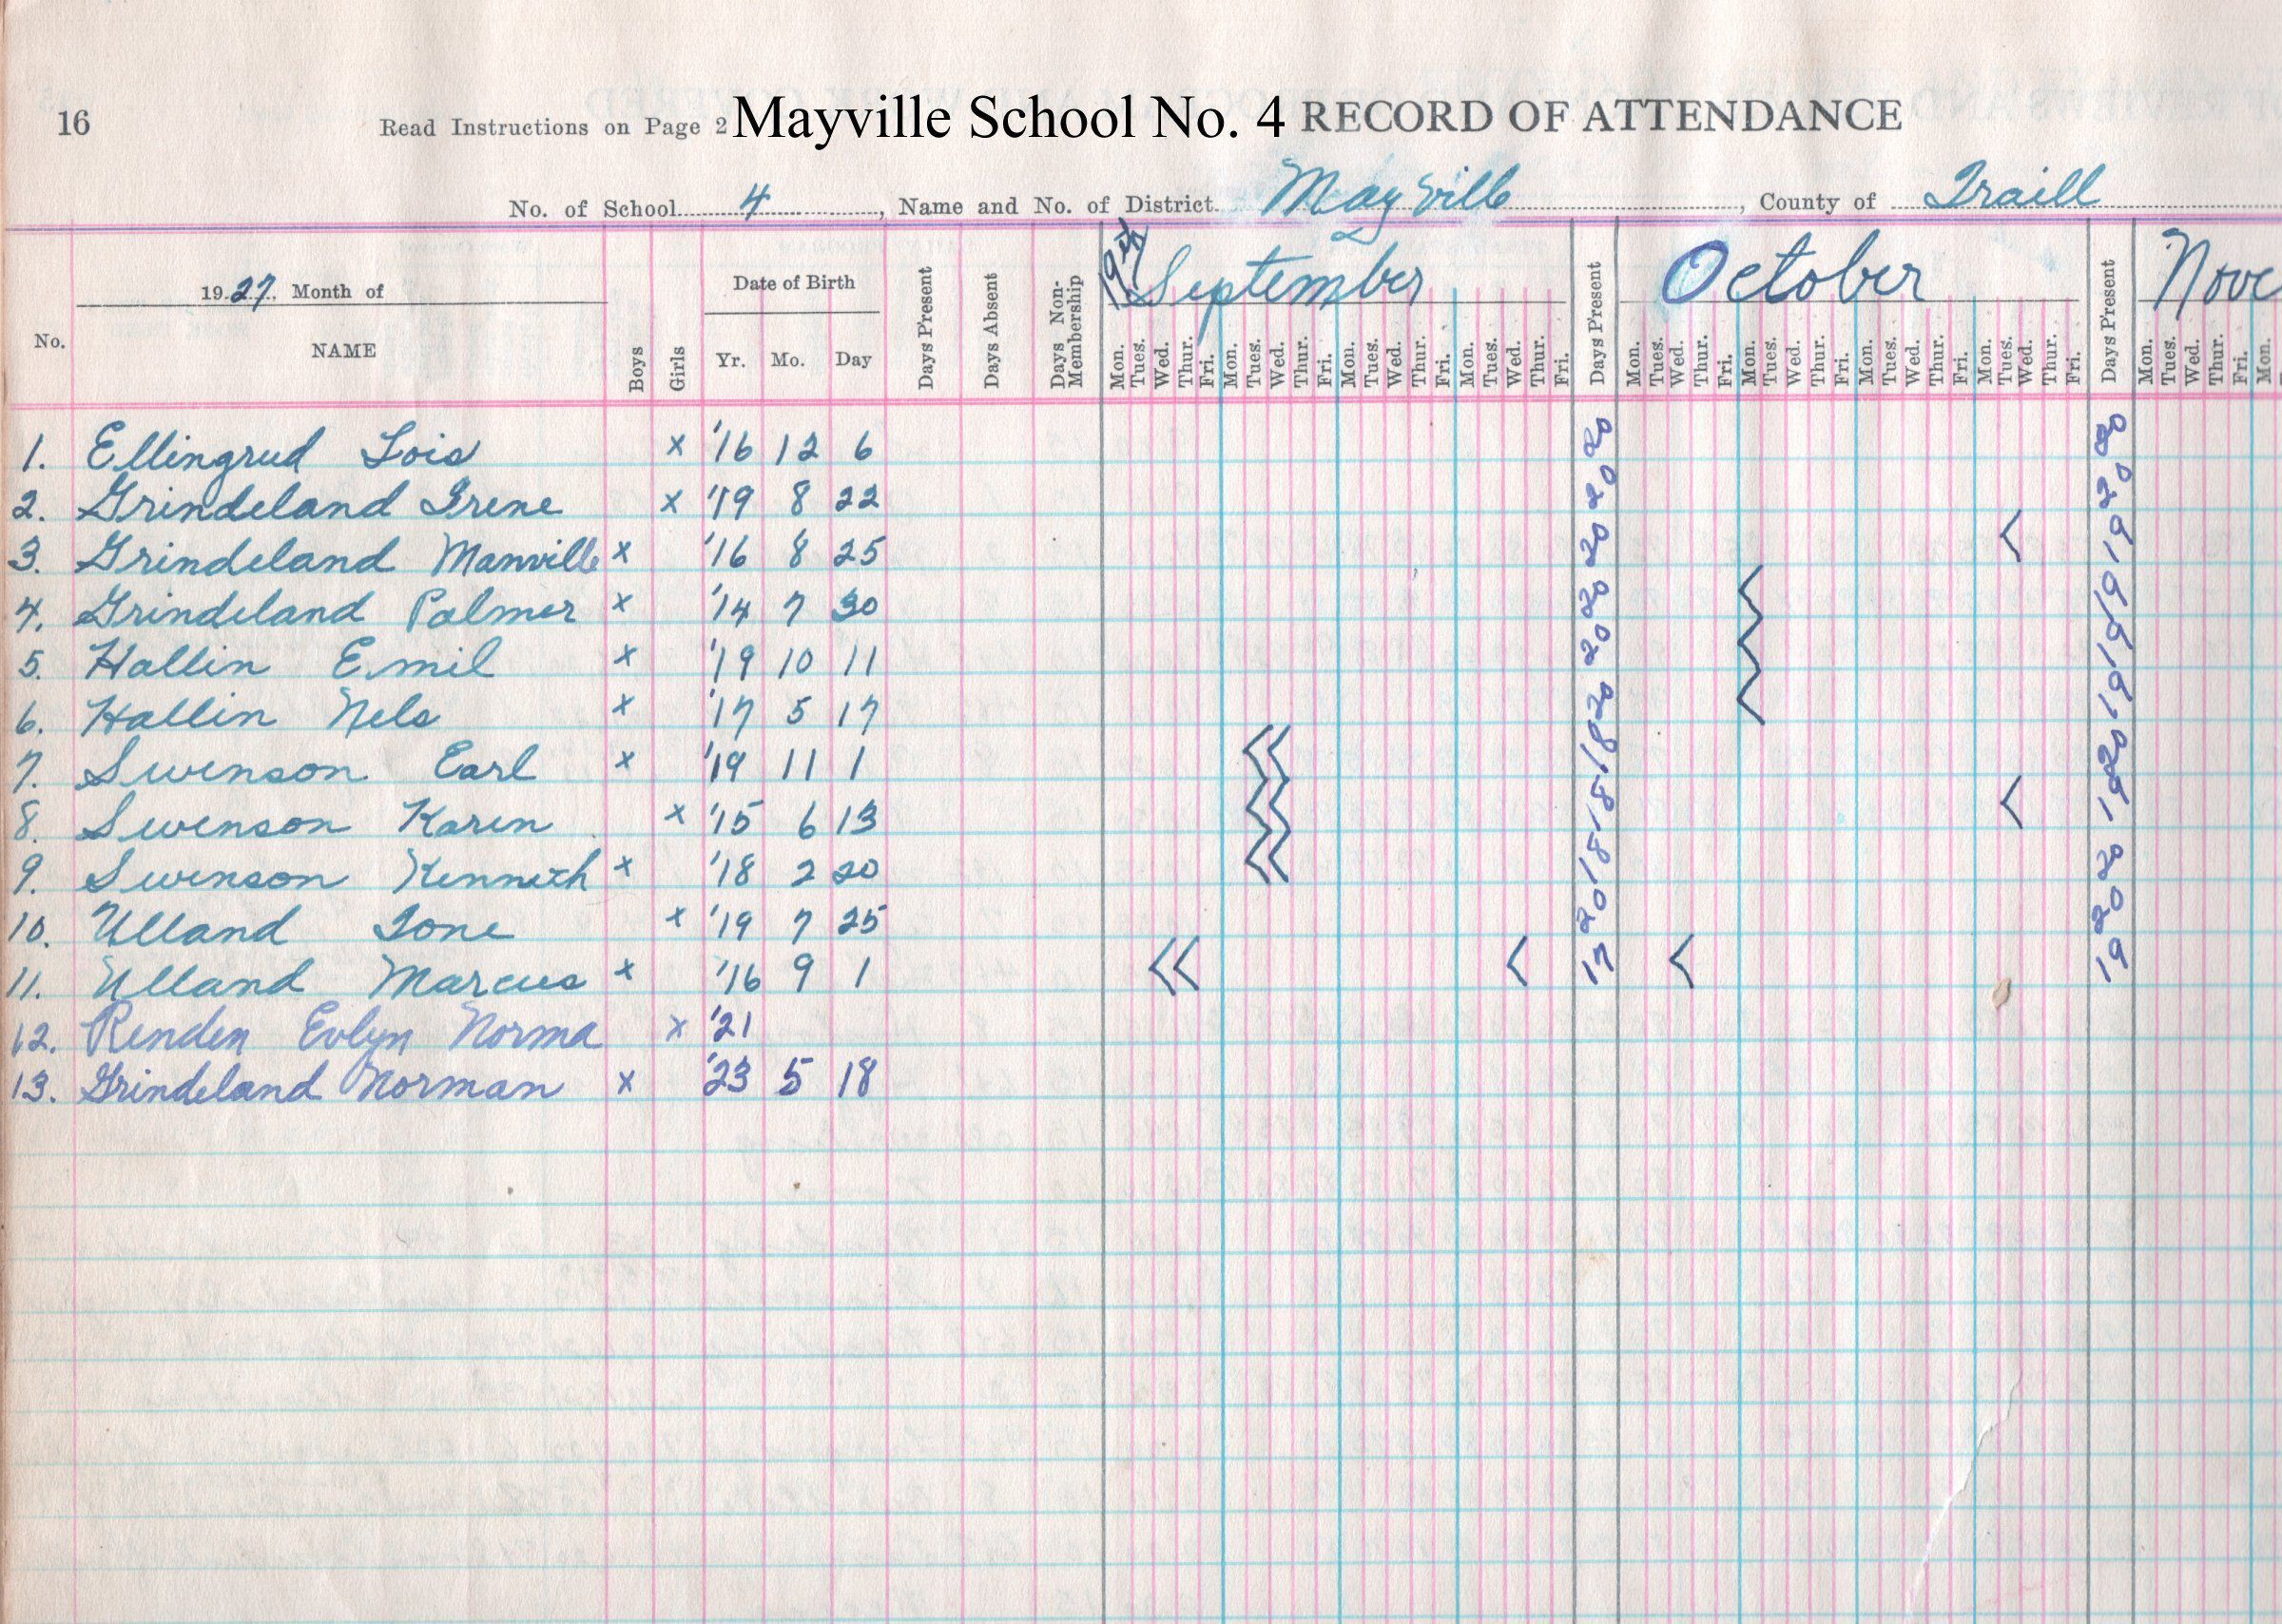 16 Read Instructions on Page 2 Mayville School No. 4 RECORD OF ATTENDANCE
No. of School 4, Name and No. of District Mayville, County of Traill
19th September October Nove
1927. Month of Date of Birth
No. NAME Boys Girls Yr. Mo. Day Days Present Days Absent Days Non-Membership Mon. Tues. Wed. Thur. Fri. Mon. Tues. Wed. Thur. Fri. Mon. Tues. Wed. Thur. Fri. Mon. Tues. Wed. Thur. Fri. Days Present Mon. Tues. Wed. Thur. Fri. Mon. Tues. Wed. Thur. Fri. Mon. Tues. Wed. Thur. Fri. Mon. Tues. Wed. Thur. Fri. Days Present Mon. Tues. Wed. Thur. Fri. Mon.
1. Ellingrud Lois x '16 12 6 20 20
2. Grindeland Irene x '19 8 22 20 20
3. Grindeland Manville x '16 8 25 20 19
4. Grindeland Palmer x '14 7 30 20 19
5. Hallin Emil x '19 10 11 20 19
6. Hallin Nels x '17 5 17 20 19
7. Swenson Earl x '19 11 1 18 20
8. Swenson Karen x '15 6 13 18 19
9. Swenson Kenneth x '18 2 20 18 20
10. Ulland Ione x '19 7 25 20 20
11. Ulland Marcus x '16 9 1 17 19
12. Renden Evlyn Norma x '21
13. Grindeland Norman x '23 5 18